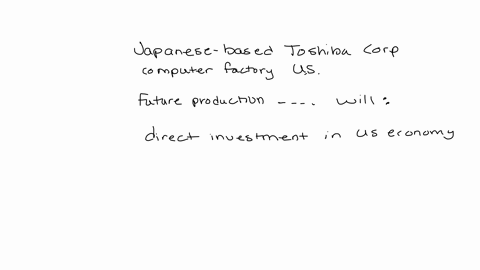 Japanese-based Toshiba Corp
computer factory US.
Future production ---. will:
direct investment in US economy